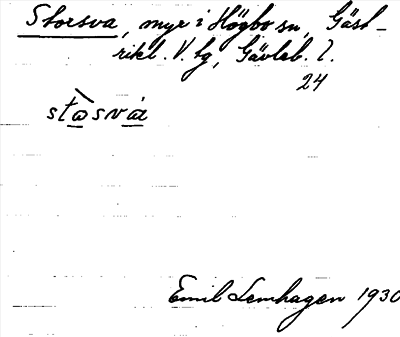 Storsva, myr i Högbo sn, Gäst-
rikl. V. tg, Gävleb. l.
24
stàsvá
Emil Lemhagen 1930